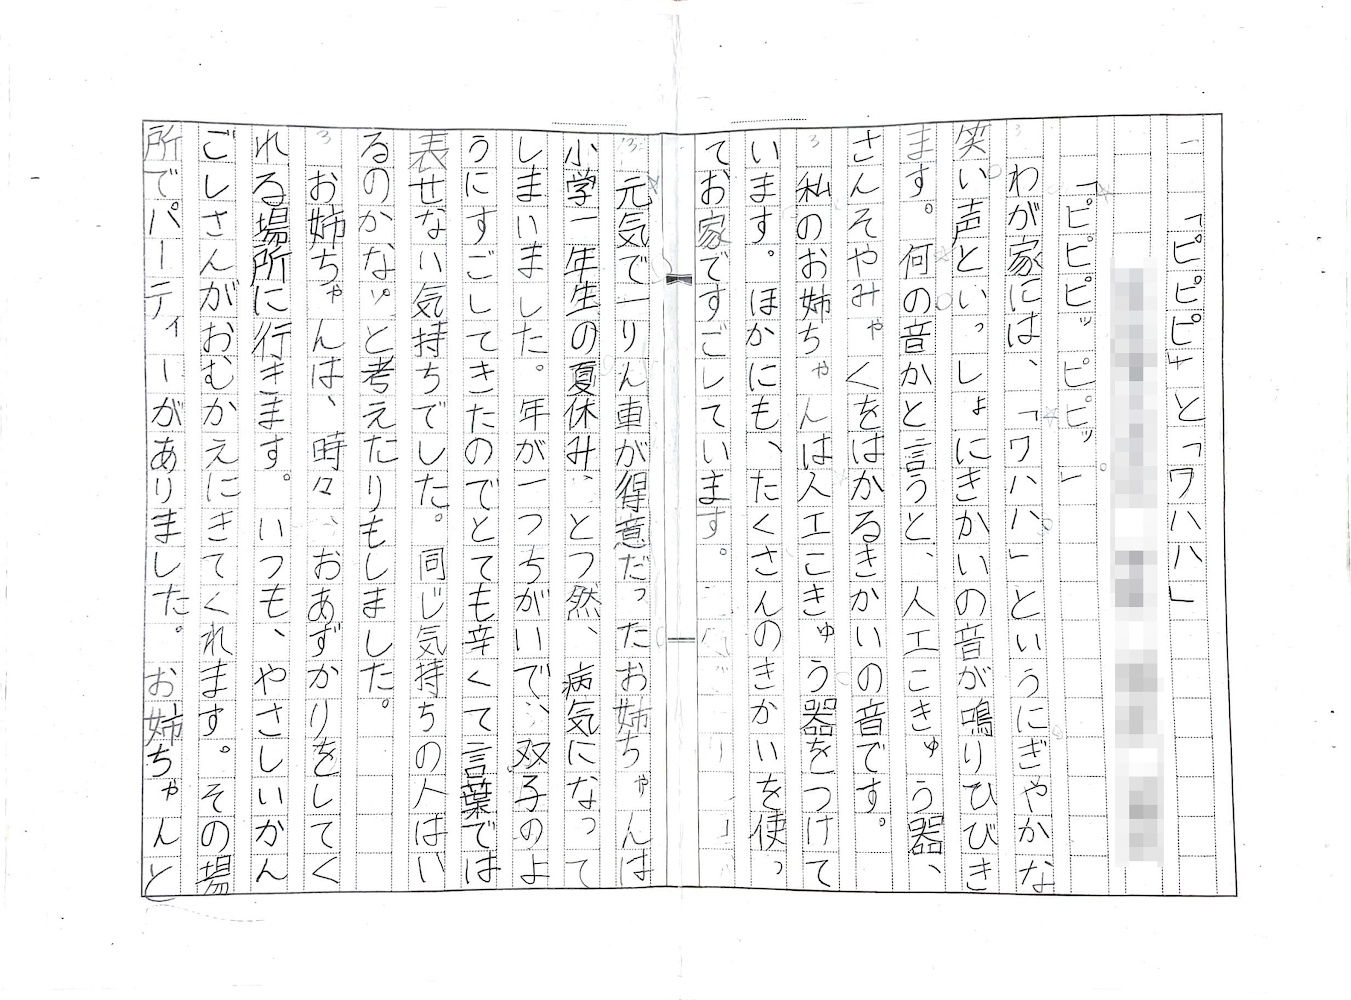 「ピピピ」と「ワハハ」
「ピピピッピピッ。」
わが家には、「ワハハ」というにぎやかな
笑い声といっしょにきかいの音が鳴りひびき
ます。何の音かと言うと、人工こきゅう器、
さんそやみゃくをはかるきかいの音です。
私のお姉ちゃんは人工こきゅう器をつけて
います。ほかにも、たくさんのきかいを使っ
てお家ですごしています。
元気で一りん車が得意だったお姉ちゃんは
小学一年生の夏休み、とつ然、病気になって
しまいました。年が一つちがいで、双子のよ
うにすごしてきたのでとても辛くて言葉では
表せない気持ちでした。同じ気持ちの人はい
るのかな。と考えたりもしました。
お姉ちゃんは、時々、おあずかりをしてく
れる場所に行きます。いつも、やさしいかん
ごしさんがおむかえにきてくれます。その場
所でパーティーがありました。お姉ちゃんと